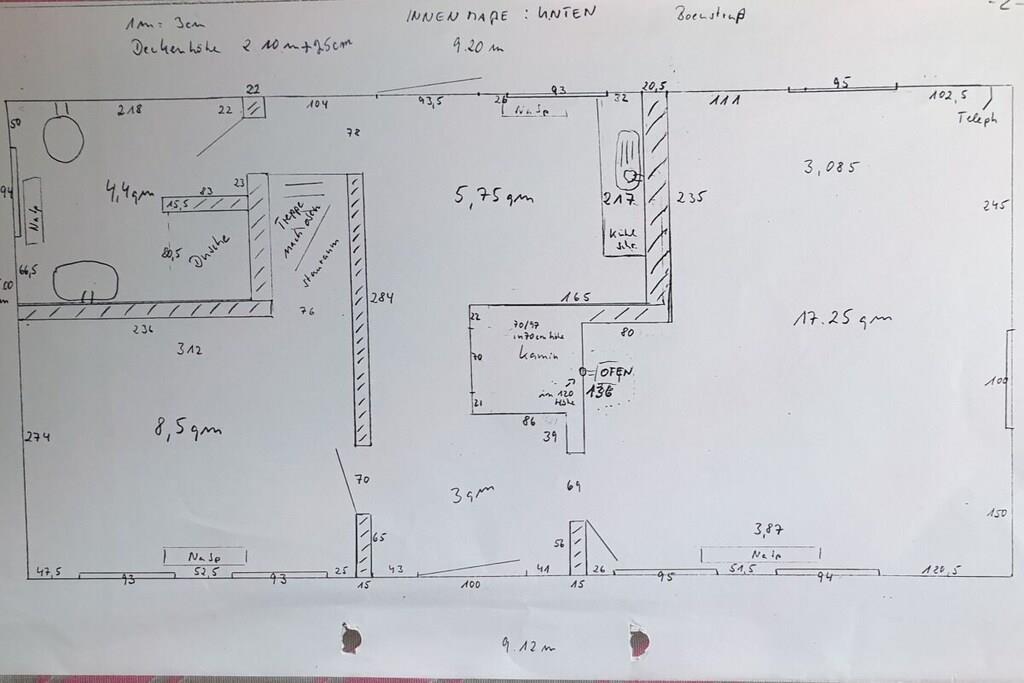 -2-
INNENMAßE : UNTEN
1m = 3cm
Deckenhöhe 2 10m + 25cm
9.20 m
22
218
22
104
93,5
26
93
32
20,5
111
95
102,5
Teleph
Na Sp
50
78
94
Na Sp
4,4qm
83
23
15,5
5,75qm
217
235
3,085
245
Treppe
nach oben
Stauraum
Dusche
80,5
66,5
Kühl
schr.
236
76
284
165
312
22
70/97
in 70cm höhe
Kamin
80
17.25 qm
70
OFEN
136
in 120
Höhe
21
86
39
100
8,5qm
274
70
3qm
69
150
65
56
3,87
Na Sp
Na Sp
47,5
93
52,5
93
25
15
43
100
41
15
26
95
51,5
94
120,5
9.12m